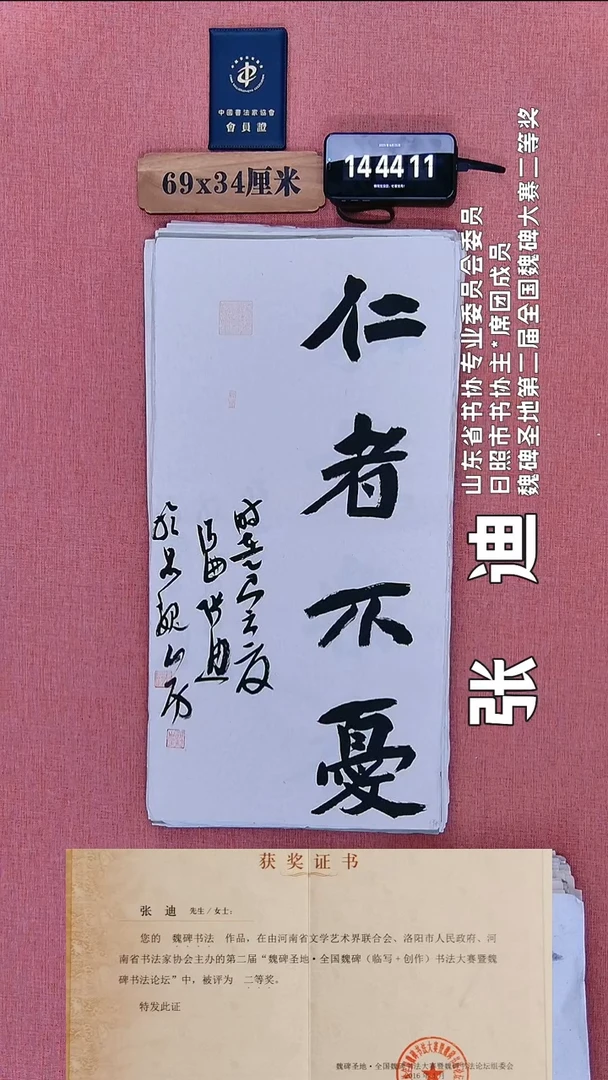 中國書法家協會
會員證
69x34厘米
14 44 11
仁者不憂
張迪
山东省书协专业委员会委员
日照市书协主*席团成员
魏碑圣地第二届全国魏碑大赛二等奖
张 迪
获奖证书
张 迪 先生/女士:
您的 魏碑书法 作品，在由河南省文学艺术界联合会、洛阳市人民政府、河
南省书法家协会主办的第二届“魏碑圣地·全国魏碑（临写+创作）书法大赛暨魏
碑书法论坛”中，被评为 二等奖。
特发此证
魏碑圣地·全国魏碑书法大赛暨魏碑书法论坛组委会